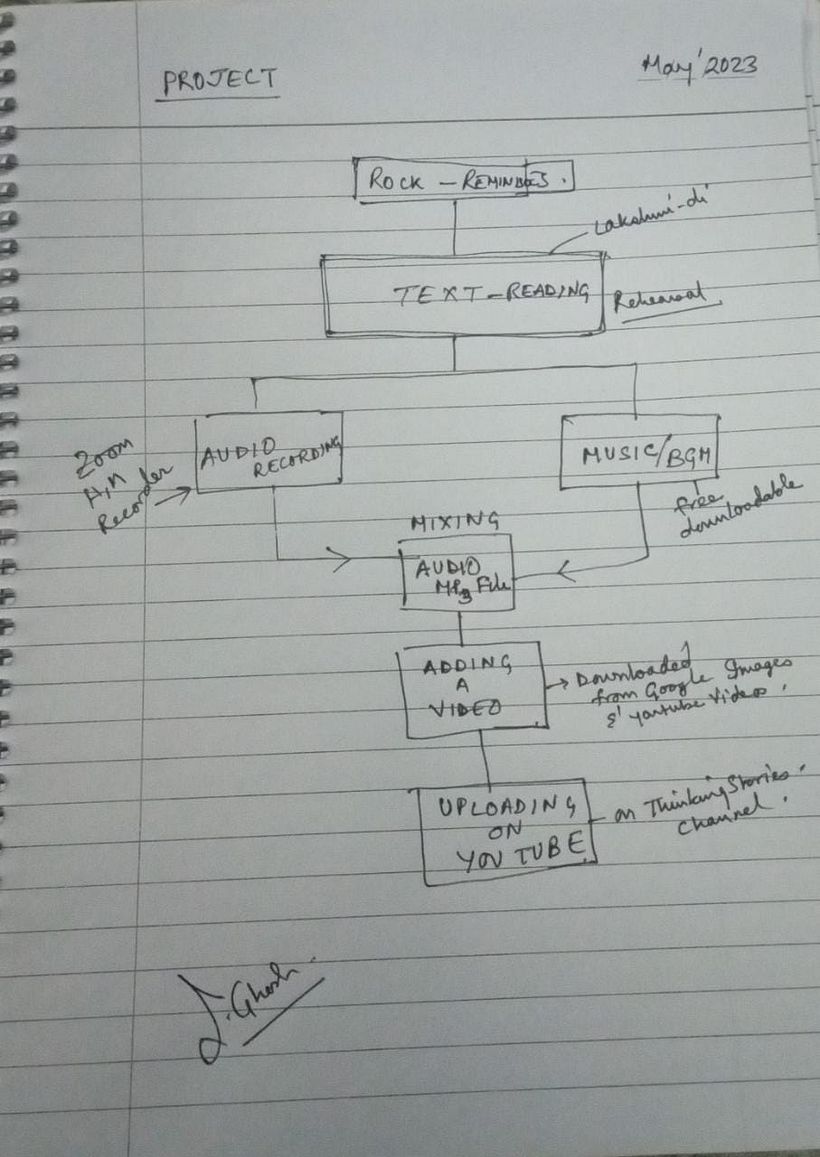 PROJECT
May' 2023
ROCK - REMINDS.
Lakshmi-di
TEXT-READING
Rehearsal
AUDIO
RECORDING
Zoom
Recorder
MUSIC/BGM
free
downloadable
MIXING
AUDIO
MP3 File
ADDING
A
VIDEO
Downloaded
from Google Images
& Youtube Videos.
UPLOADING
ON
YOUTUBE
on ThinkingStories.
Channel.
Ghosh.